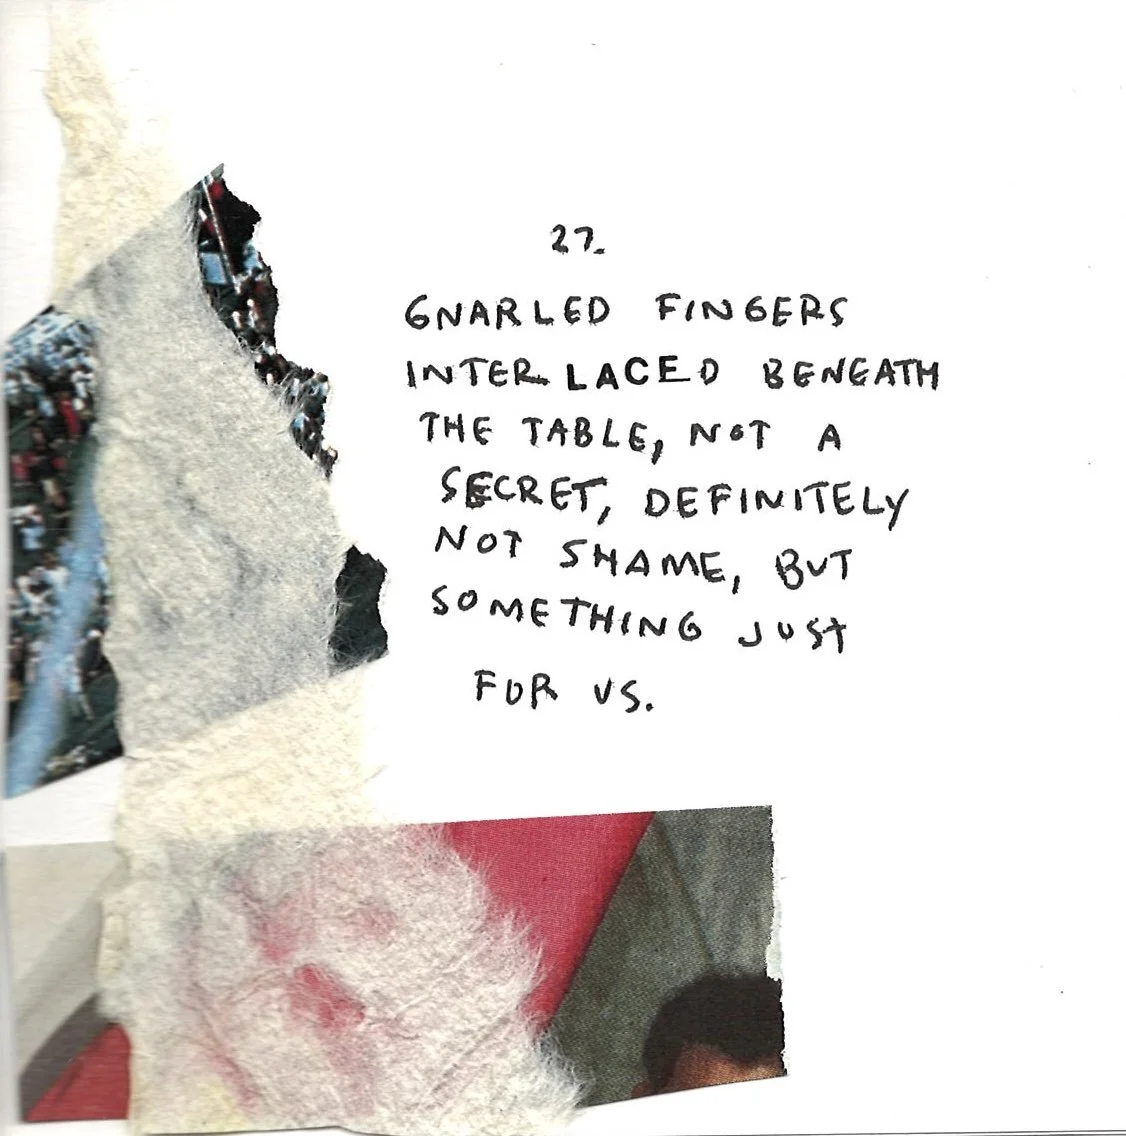 27.
GNARLED FINGERS
INTERLACED BENEATH
THE TABLE, NOT A
SECRET, DEFINITELY
NOT SHAME, BUT
SOMETHING JUST
FOR US.